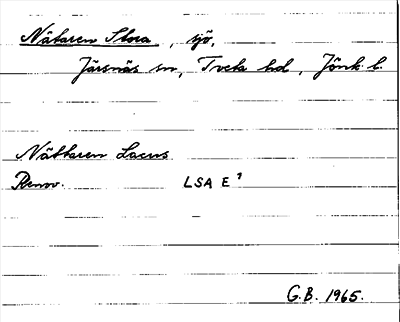 Nätaren Stora, sjö,
Järsnäs sn, Tveta hd, Jönk. l.
Nättaren Lacus
Renov. LSA E¹
G.B. 1965.